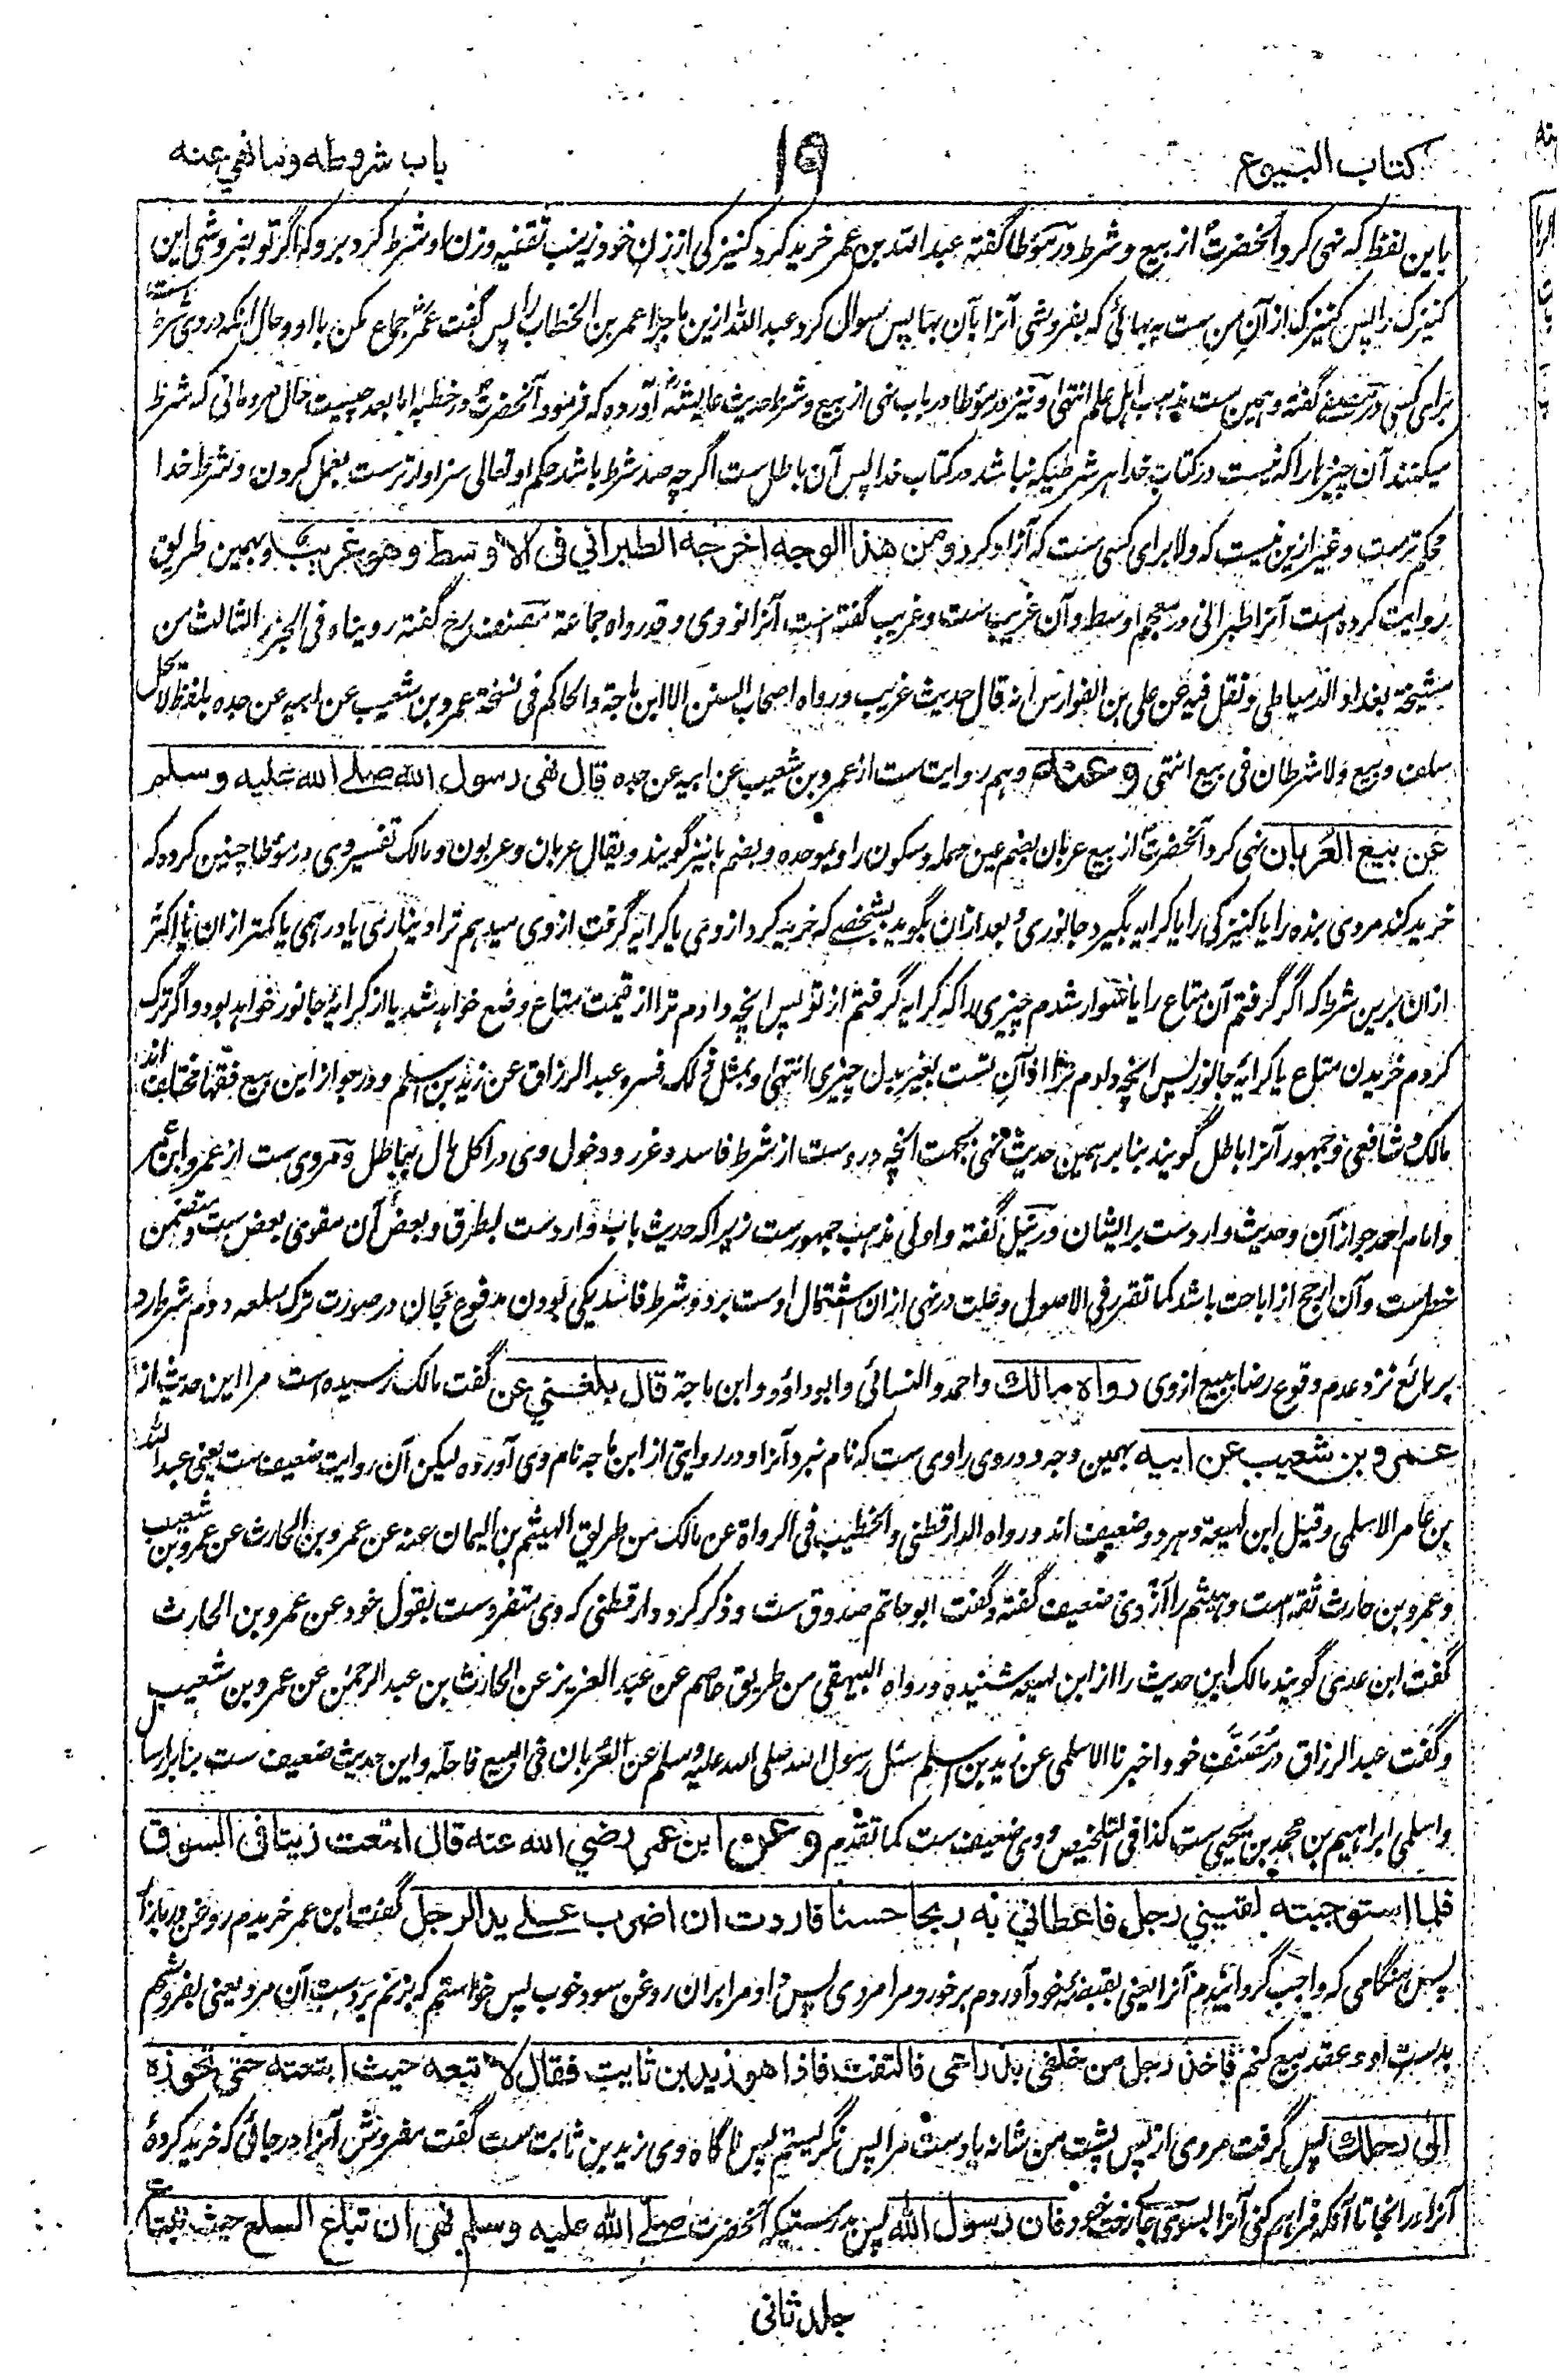 کتاب البیوع
۱۹
باب شروطه وما نهی عنه
باین لفظ که نهی کرد آنحضرت از بیع و شرط در مؤطا گفته عبد الله بن عمر خرید کرد کنیزکی از زن خود زینب ثقفیه وزن او شرط کرد برو که اگر تو بفروشی این
کنیزک را پس کنیزک از آن من ست به بهائی که بفروشی آنرا بآن بها پس سوال کرد عبد الله ازین ماجرا عمر بن الخطاب را پس گفت عمر جماع مکن با او و حال آنکه در وی شرط است
برای کسی در مصفے گفته و همین ست مذهب اهل علم انتهی و نیز در مؤطا در باب نهی از بیع و شرط حدیث عایشه آورده که فرمود آنحضرت در خطبه اما بعد چیست حال مردمانی که شرط
میکنند آن چیزها را که نیست در کتاب خدا هر شرطیکه نباشد در کتاب خدا پس آن باطل ست اگر چه صد شرط باشد حکم او تعالی سزاوارتر ست بعمل کردن و شرط خدا
محکم تر ست و غیر ازین نیست که ولا برای کسی ست که آزاد کرد ومن هذا الوجه اخرجه الطبرانی فی الاوسط وهو غریب و بهمین طریق
روایت کرده است آنرا طبرانی در معجم اوسط و آن غریب ست و غریب گفته است آنرا نووی و قد رواه جماعة مصنف رح گفته رویناه فی الجزء الثالث من
مشیخة بغداد الدمیاطی و نقل فیه عن علی بن الفوارس انه قال حدیث غریب و رواه اصحاب السنن الا ابن ماجة والحاکم فی نسخة عمرو بن شعیب عن ابیه عن جده بلفظ لا یحل
سلف و بیع ولا شرطان فی بیع انتهی وعنه و هم روایت ست از عمرو بن شعیب عن ابیه عن جده قال نهی رسول الله صلے الله علیه وسلم
عن بیع العُربان نهی کرد آنحضرت از بیع عربان بضم عین مهمله و سکون را و بموحده و بضم با نیز گویند و یقال عربان و عربون و مالک تفسیر وی در مؤطا چنین کرده که
خرید کند مردی بنده را یا کنیزکی را یا کرایه بگیرد جانوری و بعد ازان بگوید بشخصے که خرید کرد از وی یا کرایه گرفت از وی میدهم ترا دیناری یا درهمی یا کمتر ازان یا اکثر
ازان برین شرط که اگر گرفتم آن متاع را یا سوار شدم چیزی را که کرایه گرفتم از تو پس آنچه دادم ترا از قیمت متاع وضع خواهد شد یا از کرایهٔ جانور خواهد بود و اگر ترک
کردم خریدن متاع یا کرایهٔ جانور پس آنچه دادم ترا از آن تست بغیر بدل چیزی انتهی و بمثل ذلک فسره عبد الرزاق عن زید بن اسلم و در جواز این بیع فقها مختلف اند
مالک و شافعی و جمهور آنرا باطل گویند بنا بر همین حدیث نهی بجهت آنچه در وست از شرط فاسد و غرر و دخول وی در اکل مال بباطل و مروی ست از عمر و ابن عمر
و امام احمد جواز آن و حدیث وارد ست بر ایشان در نیل گفته و اولی مذهب جمهور ست زیرا که حدیث باب وارد ست بطرق و بعض آن مقوی بعض ست و متضمن
حظر ست و آن ارجح از اباحت باشد کما تقرر فی الاصول و علت در نهی ازان اشتمال او ست بر دو شرط فاسد یکی بودن مدفوع مجان در صورت ترک سلعه و دوم شرط رد
بر بائع نزد عدم وقوع رضا ببیع از وی رواه مالک و احمد و النسائی و ابو داود و ابن ماجة قال بلغنی عن گفت مالک رسیده است مرا این حدیث از
عمرو بن شعیب عن ابیه بهمین وجه و در وی راوی ست که نام نبرد آنرا و در روایتی از ابن ماجه نام وی آورده لیکن آن روایت ضعیف ست یعنی عبد الله
بن عامر الاسلمی و قیل ابن لهیعة و هر دو ضعیف اند و رواه الدارقطنی والخطیب فی الرواة عن مالک من طریق الهیثم بن الیمان عنه عن عمرو بن الحارث عن عمرو بن شعیب
و عمرو بن حارث ثقه است و هیثم را ازدی ضعیف گفته و گفت ابو حاتم صدوق ست و ذکر کرد دارقطنی که وی متفرد ست بقول خود عن عمرو بن الحارث
گفت ابن عدی گویند مالک این حدیث را از ابن لهیعه شنیده و رواه البیهقی من طریق عاصم عن عبد العزیز عن الحارث بن عبد الرحمن عن عمرو بن شعیب
و گفت عبد الرزاق در مصنف خود اخبرنا الاسلمی عن زید بن اسلم سئل رسول الله صلی الله علیه وسلم عن العُربان فی البیع فاحله و این حدیث ضعیف ست بنا بر ارسال
و اسلمی ابراهیم بن محمد بن یحیی ست کذا فی التلخیص و وی ضعیف ست کما تقدم وعن ابن عمر رضی الله عنه قال ابتعت زیتا فی السوق
فلما استوجبته لقینی رجل فاعطانی به ربحا حسنا فاردت ان اضرب علے ید الرجل گفت ابن عمر خریدم روغن در بازار
پس هنگامی که واجب گردانیدم آنرا یعنی بقبضهٔ خود آوردم برخورد مرا مردی پس داد مرا بران روغن سود خوب پس خواستم که بزنم بر دست آن مرد یعنی بفروشم
بدست او و عقد بیع کنم فاخذ رجل من خلفی بذراعی فالتفت فاذا هو زید بن ثابت فقال لا تبعه حیث ابتعته حتی تحوزه
الی رحلک پس گرفت مردی از پس پشت من شانه یا دست مرا پس نگریستم پس ناگاه وی زید بن ثابت ست گفت مفروش آنرا در جائی که خرید کردهٔ
آنرا در انجا تا آنکه فراهم کنی آنرا بسوی جای رخت خود فان رسول الله پس بدرستیکه آنحضرت صلے الله علیه وسلم نهی ان تباع السلع حیث تبتاع
جلد ثانی